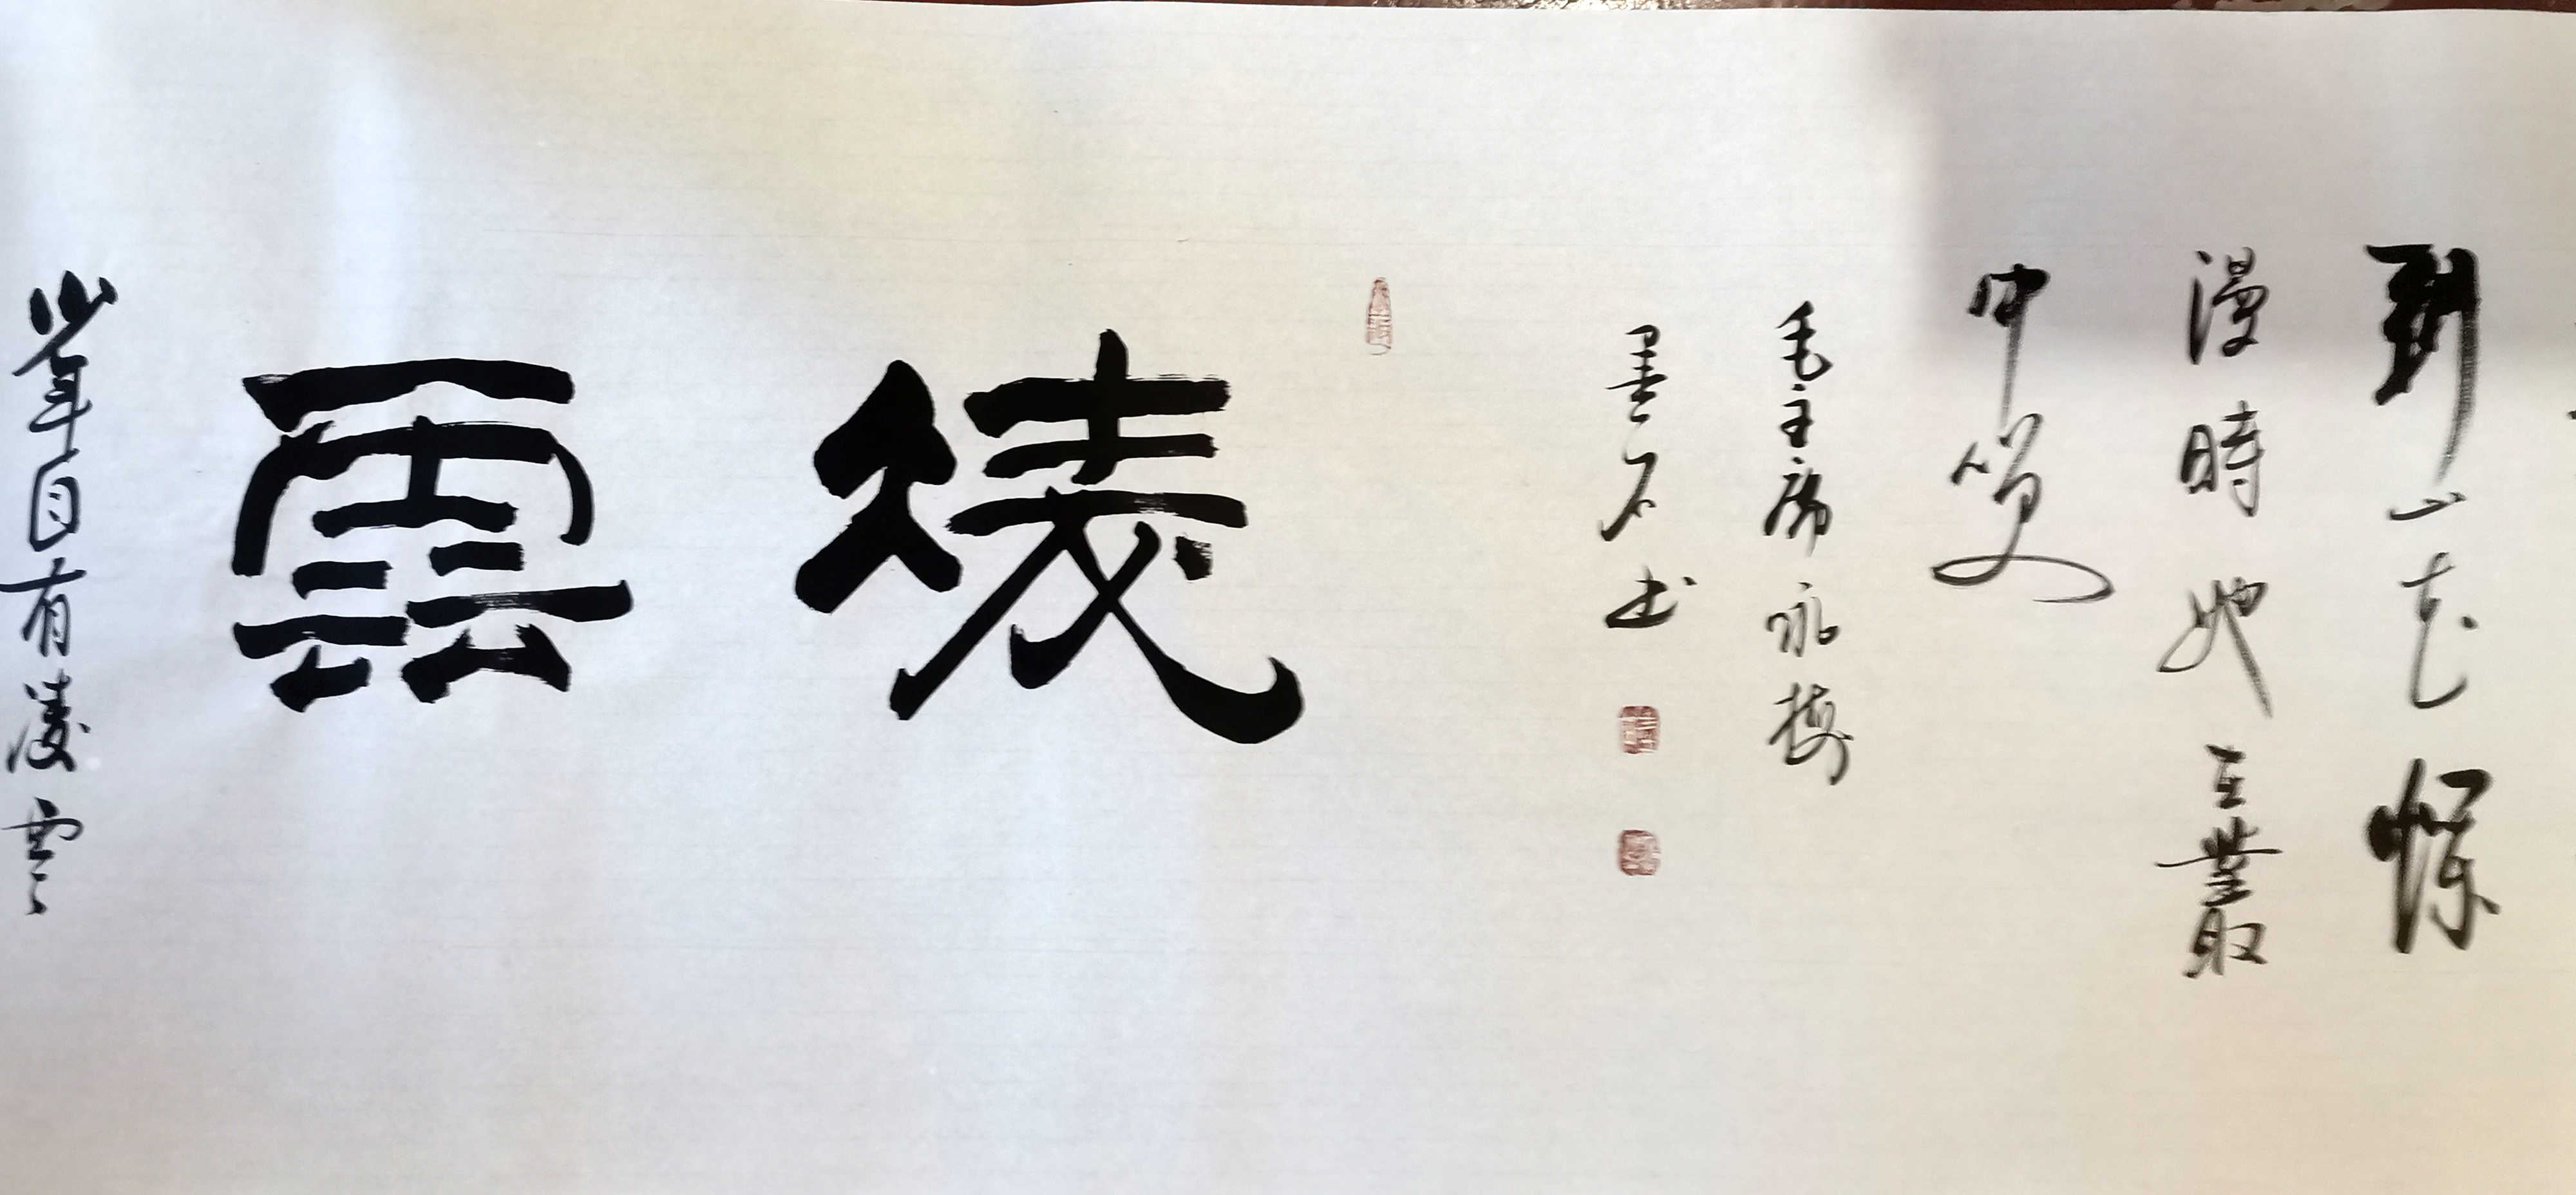 到山花爛
漫時她在叢
中笑
毛主席咏梅
墨石书
凌雲
少年自有凌雲